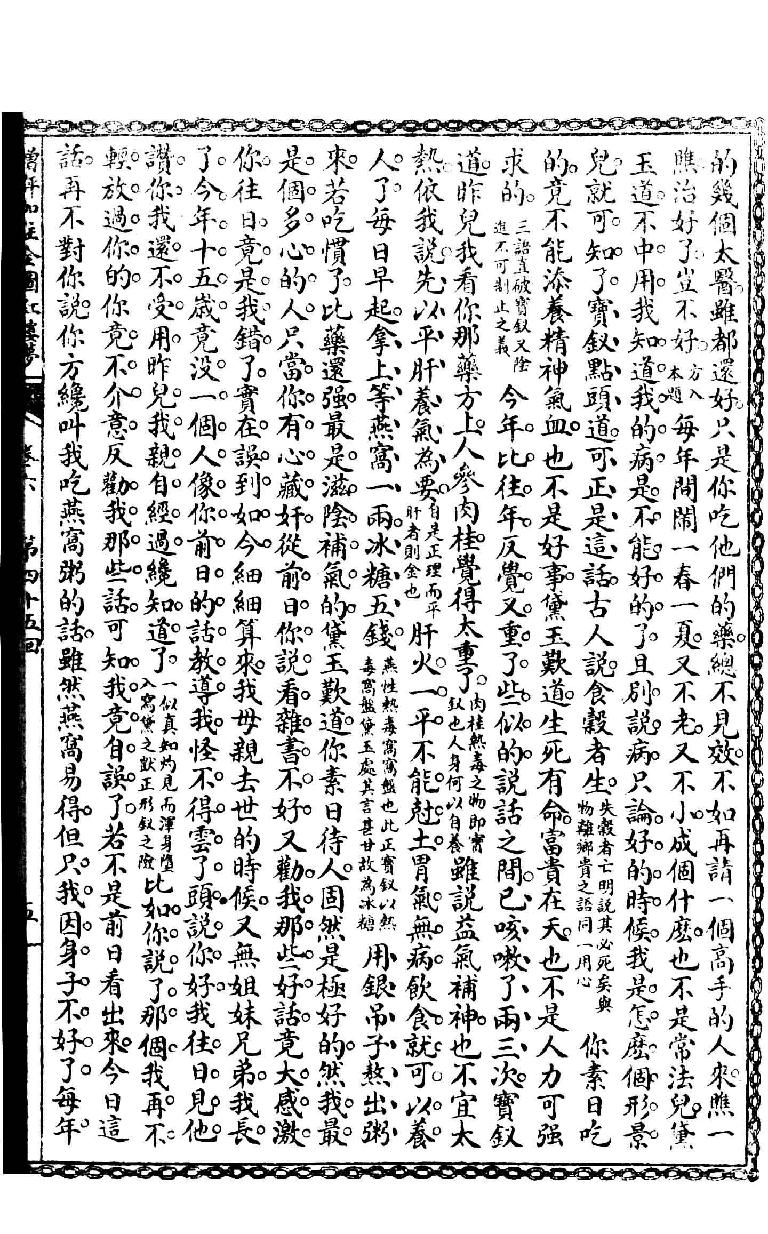 的幾個太醫雖都還好只是你吃他們的藥總不見效不如再請一個高手的人來瞧一
瞧治好了豈不好方入本題每年間鬧一春一夏又不老又不小成個什麼也不是常法兒黛
玉道不中用我知道我的病是不能好的了且別說病只論好的時候我是怎麼個形景
兒就可知了寶釵點頭道可正是這話古人說食穀者生失穀者亡明說其必死矣與物離鄉貴之語同一用心你素日吃
的竟不能添養精神氣血也不是好事黛玉歎道生死有命富貴在天也不是人力可強
求的三語直破寶釵又陰進不可制止之義今年比往年反覺又重了些似的說話之間已咳嗽了兩三次寶釵
道昨兒我看你那藥方上人參肉桂覺得太重了肉桂熱毒之物即寶釵也人身何以自養雖說益氣補神也不宜太
熱依我說先以平肝養氣為要自是正理而平肝者則金也肝火一平不能尅土胃氣無病飲食就可以養
人了每日早起拿上等燕窩一兩冰糖五錢燕性熱毒窩窩盤也此正寶釵以熱毒窩盤黛玉處其言甚甘故為冰糖用銀吊子熬出粥
來若吃慣了比藥還強最是滋陰補氣的黛玉歎道你素日待人固然是極好的然我最
是個多心的人只當你有心藏奸從前日你說看雜書不好又勸我那些好話竟大感激
你往日竟是我錯了實在誤到如今細細算來我母親去世的時候又無姐妹兄弟我長
了今年十五歲竟没一個人像你前日的話教導我怪不得雲了頭說你好我往日見他
讚你我還不受用昨兒我親自經過纔知道了一似真知灼見而渾身墮入窩黛之獃正形釵之險比如你說了那個我再不
輕放過你的你竟不介意反勸我那些話可知我竟自誤了若不是前日看出來今日這
話再不對你說你方纔叫我吃燕窩粥的話雖然燕窩易得但只我因身子不好了每年
增評加註全圖紅樓夢 卷六 第四十五回 五